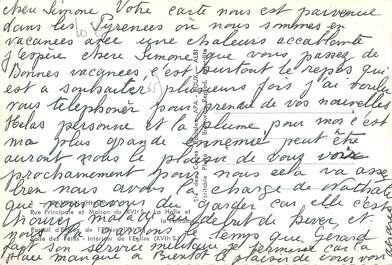 chere Simone Votre carte nous est parvenue
dans les Pyrenees où nous sommes en
vacances avec une chaleurs accablante
J'espère chere Simone que vous passez de
Bonnes vacances, c'est surtout le repos qui
est a souhaiter plusieurs fois j'ai voulu
vous telephonér pour prendre de vos nouvelles
Helas personne et la plume pour moi c'est
ma plus grande ennemie peut être
auront nous le plaisir de vous voir
prochainement pour nous sela va asse
bien nous avons la charge de Nathalie
que nous avons du garder car elle c'est
trouver malade au debut de hiver et
nous la garderons le temps que Gérard
fait son service militaire je termine car la
place manque a Bientot le plaisir de vous voir
Rue Principale et Maison du XVI
La Halle et
Portail d'
Salle des Fêtes - Intérieur de l'Eglise (XVII